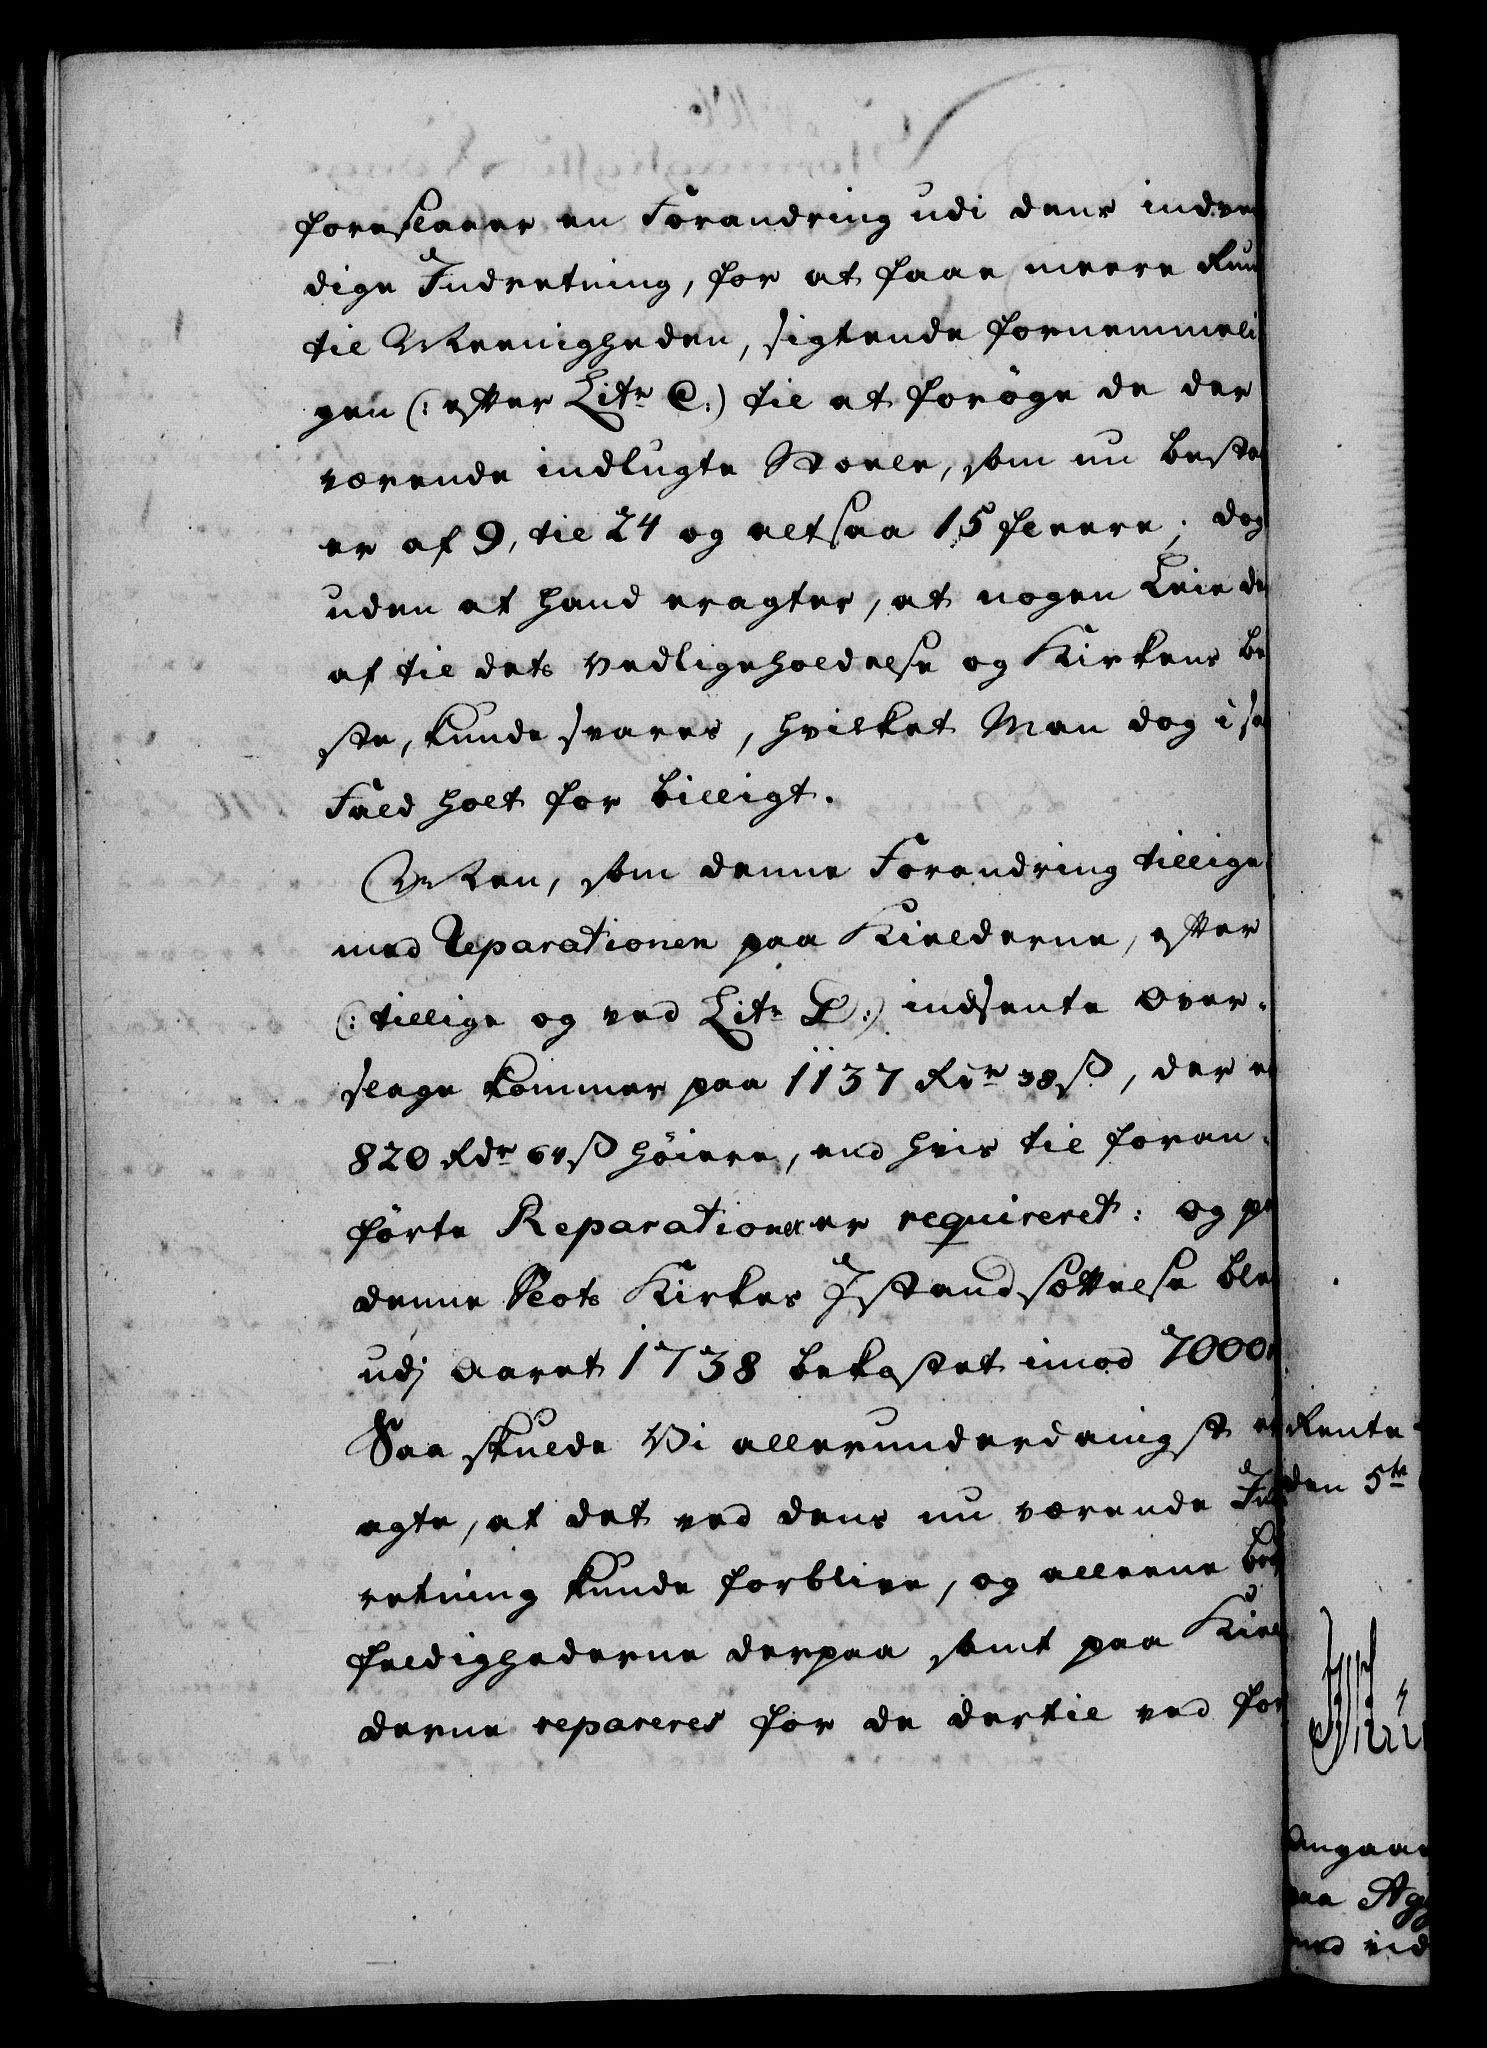 foreslaaer en Forandring udi dens indven
dige Indretning, for at faae meere Rum
til Meenigheden, sigtende fornemmeli
gen (: efter Litr C:) til at forøge de der
værende indlugte Stoele, som nu bestaa
er af 9, til 24 og altsaa 15 fleere; dog
uden at hand eragter, at nogen Leie der
af til dets Vedligeholdelse og Kirkens be
ste, kunde svares, hvilket Man dog i saa
Fald holt for billigt.
Men, som denne Forandring tillige
med Reparationen paa Kielderne, efter
(: tillige og ved Litr D:) indsente Over-
slage kommer paa 1137 Rdr 38 ß, der er
820 Rdr 64 ß høiere, end hvis til foran-
førte Reparationer er requireret: og paa
denne Slots Kirkes Istandsættelse blev
udj Aaret 1738 bekostet imod 7000
Saa skulde Vi allerunderdanigst er
agte, at det ved dens nu værende Ind
retning kunde forblive, og alleene Brøst
fældighederne derpaa samt paa Kiel
derne repareres for de dertil ved for
Rente
den 5te
Angaae
paa Ag
med vid